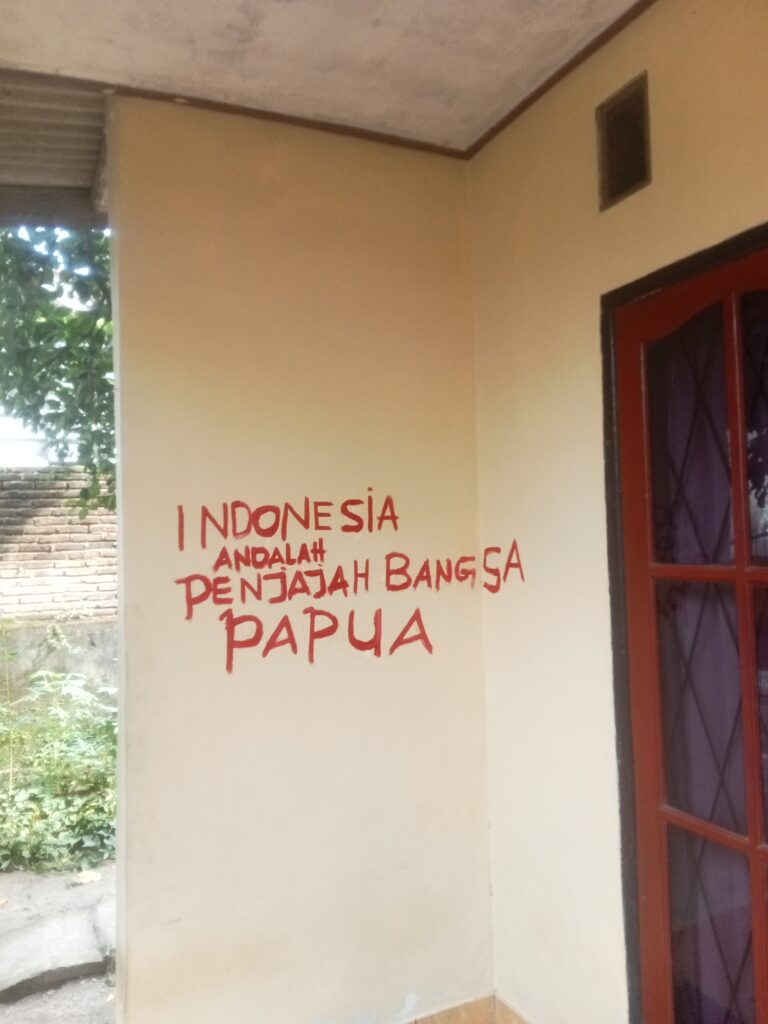 INDONESIA
ANDALAH
PENJAJAH BANGSA
PAPUA